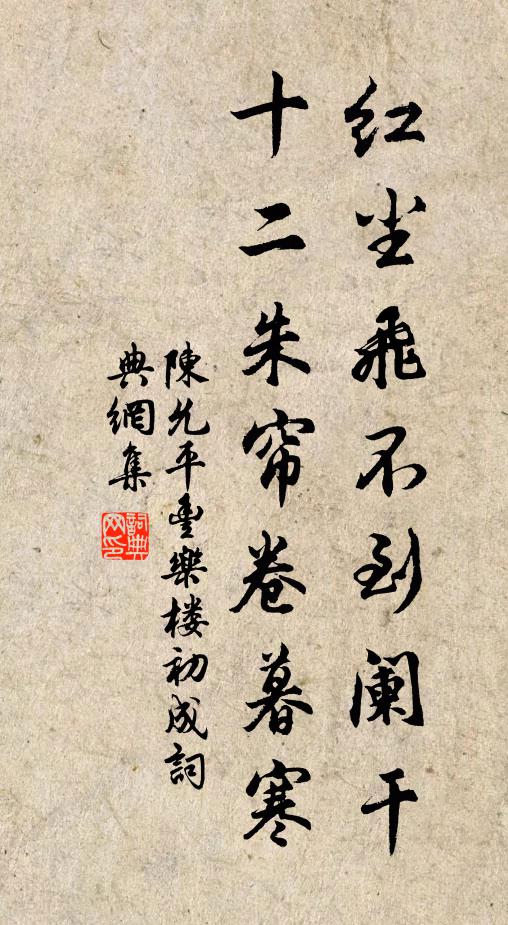 红尘飛不到阑干
十二朱帘卷暮寒
陳允平豊樂楼初成詞
典網集
詞典网印